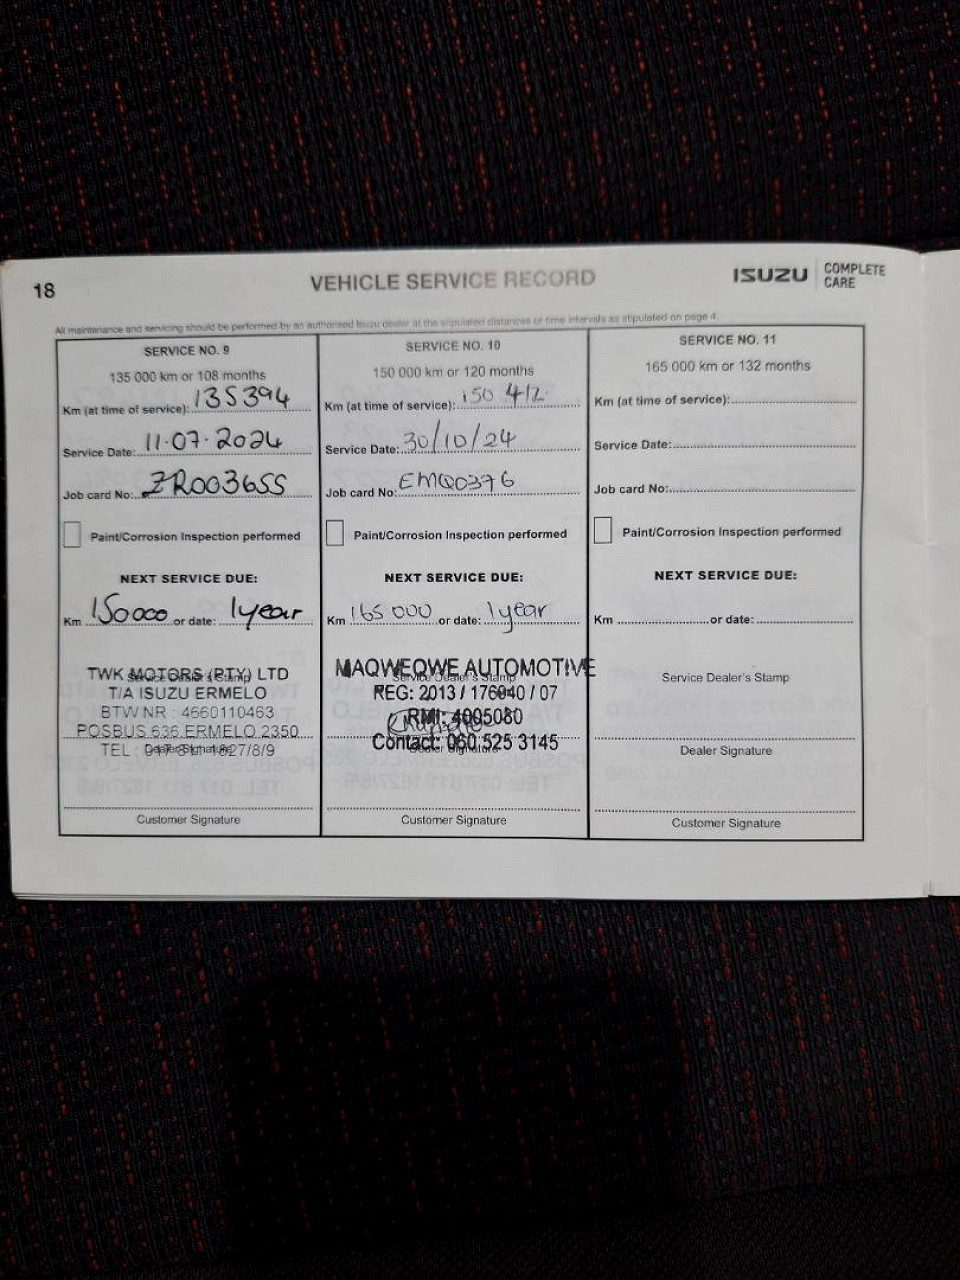 18
VEHICLE SERVICE RECORD
ISUZU
COMPLETE
CARE
All maintenance and servicing should be performed by an authorised Isuzu dealer at the stipulated distances or time intervals as stipulated on page 4.
SERVICE NO. 9
135 000 km or 108 months
Km (at time of service): 135394
Service Date: 11-07-2024
Job card No: ZR003655
Paint/Corrosion Inspection performed
NEXT SERVICE DUE:
Km 150000 or date: 1 year
Service Dealer's Stamp
TWK MOTORS (PTY) LTD
T/A ISUZU ERMELO
BTW NR : 4660110463
POSBUS 636 ERMELO 2350
TEL : 017 811 1627/8/9
Dealer Signature
Customer Signature
SERVICE NO. 10
150 000 km or 120 months
Km (at time of service): 150 412
Service Date: 30/10/24
Job card No: EMQ0376
Paint/Corrosion Inspection performed
NEXT SERVICE DUE:
Km 165 000 or date: 1 year
MAQWEQWE AUTOMOTIVE
Service Dealer's Stamp
REG: 2013 / 176940 / 07
RMI: 4005080
Contact: 060 525 3145
Dealer Signature
Customer Signature
SERVICE NO. 11
165 000 km or 132 months
Km (at time of service):
Service Date:
Job card No:
Paint/Corrosion Inspection performed
NEXT SERVICE DUE:
Km or date:
Service Dealer's Stamp
Dealer Signature
Customer Signature